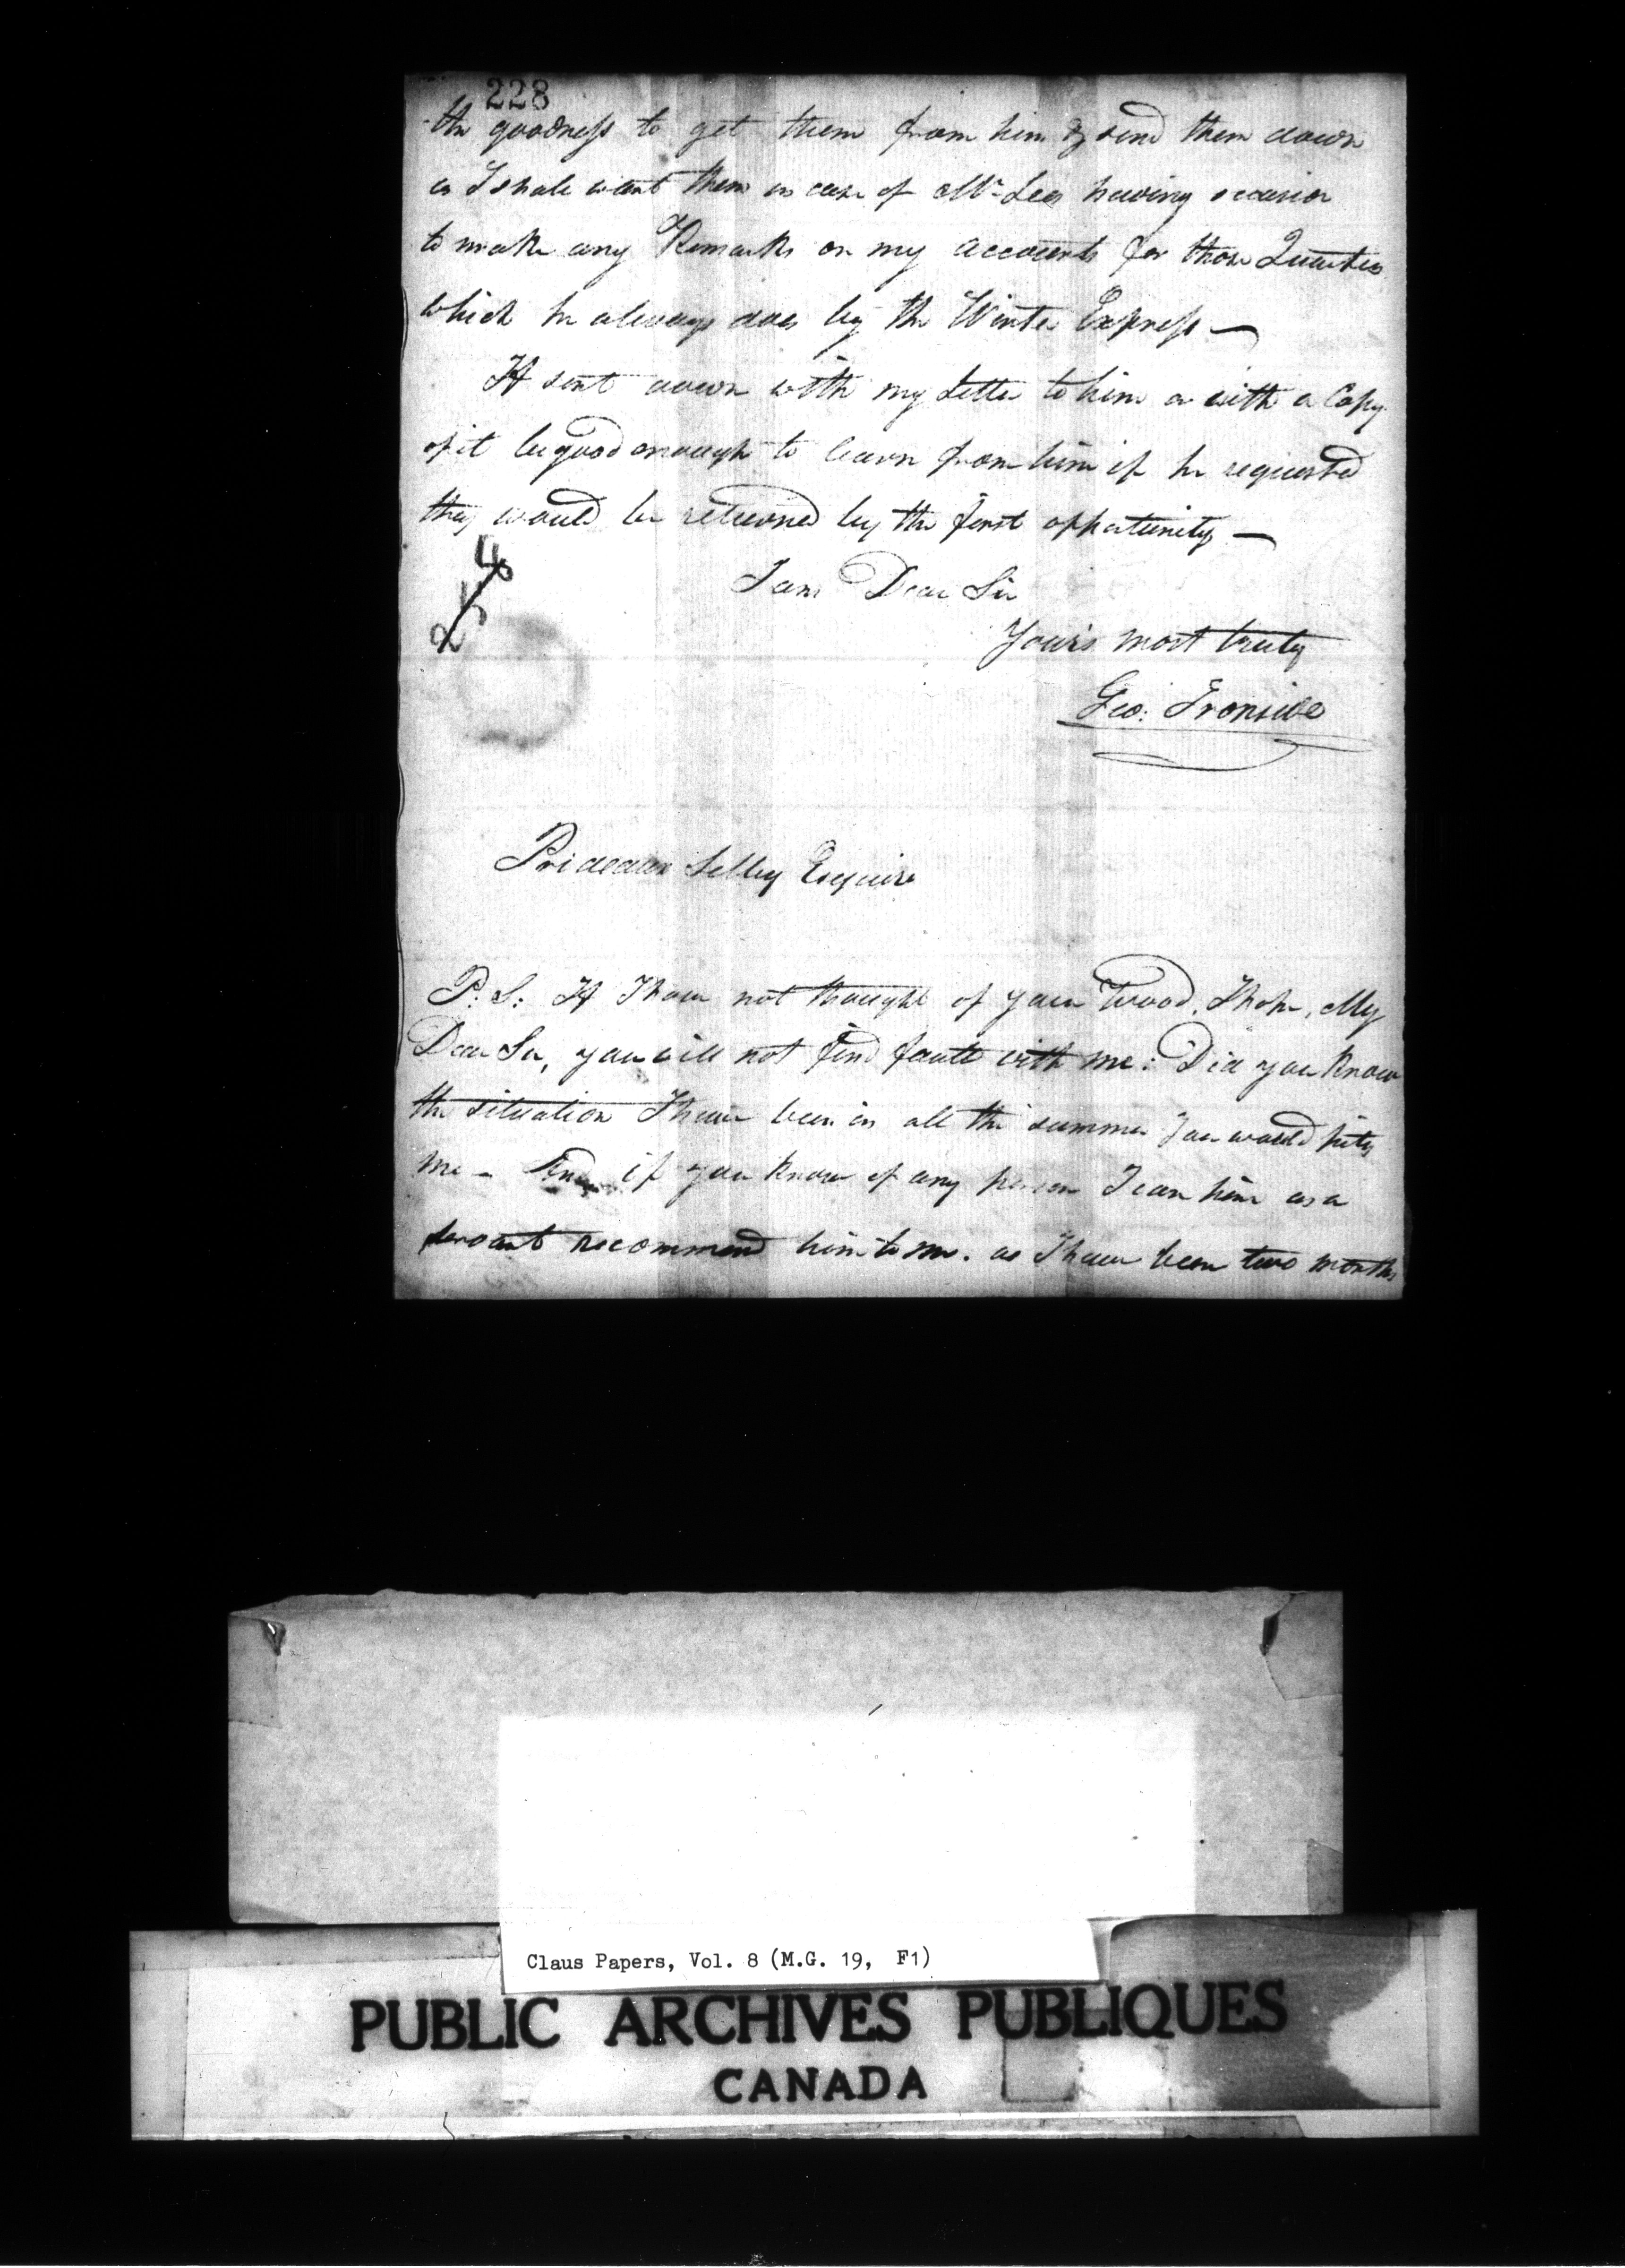 228
the goodness to get them from him & send them down
as I shall want them in case of Mr. Lees having occasion
to make any Remarks on my accounts for those Quarters
which he always does by the Winter Express —
If sent down with my Letter to him or with a Copy
of it be good enough to learn from him if he requested
they would be returned by the first opportunity —
254
I am Dear Sir
Yours most truly
Geo: Ironside
Prideaux Selby Esquire
P: S: If I have not thought of your Wood, I hope, My
Dear Sir, you will not find fault with me: Did you know
the situation I have been in all the summer you would pity
me — And if you know of any person I can hire as a
servant recommend him to me. as I have been two months
Claus Papers, Vol. 8 (M.G. 19, F1)
PUBLIC ARCHIVES PUBLIQUES
CANADA